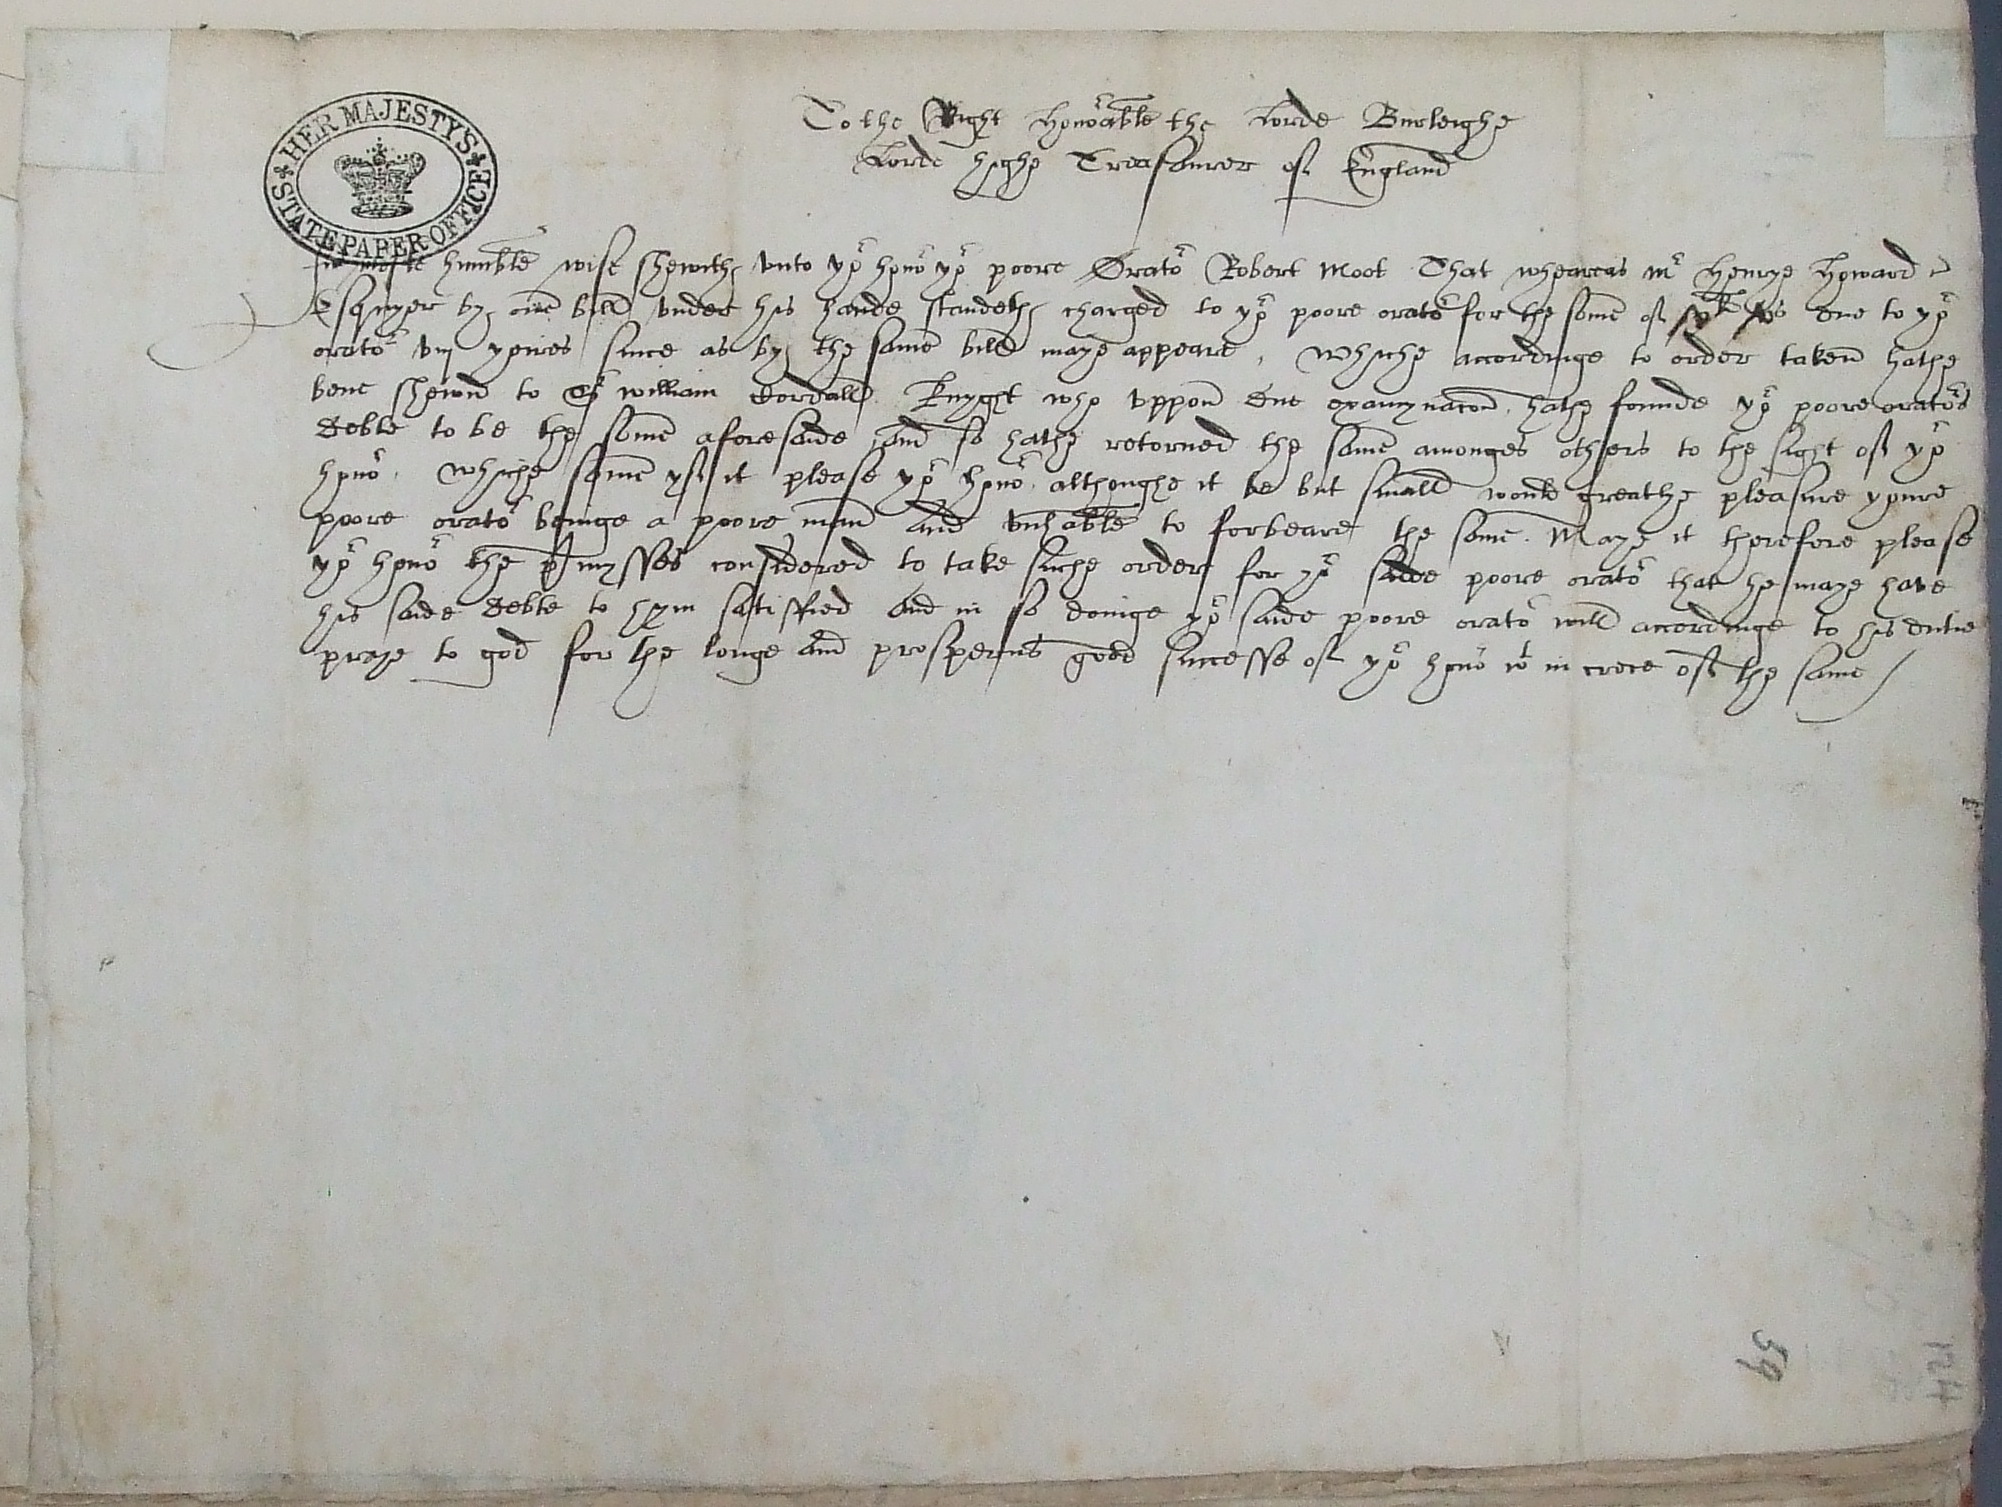 HER MAJESTY'S STATE PAPER OFFICE
To the Right honorable the Lorde Burleighe
Lorde highe Treasourer of England
In moste humble wise shewith unto yor honor yor poore Orator Robert Moot That wheareas Mr Henrye Howard
Esquyer by one bill under his hande standeth charged to yor poore orator for the some of due to yor
orator yeires since as by the same bill maye appeare, Whiche accordinge to order taken hathe
bene shewn to Sr William Cordall Knyght who uppon due examynacon hathe founde yor poore orators
debte to be the some aforesaide and so hathe retorned the same amonges others to the sight of yor
honor. Whiche same yf it please yor honor althoughe it be but small woulde greatlye pleasure youre
poore orator beinge a poore man and unhable to forbeare the some. Maye it therefore please
yor honor the pmysses considered to take suche order for yor saide poore orator that he maye have
his saide debte to hym satisffied And in so doinge yor saide poore orator will accordinge to his dutie
praye to god for the longe and prosperus good successe of yor honor wt increce off the same /
59
154